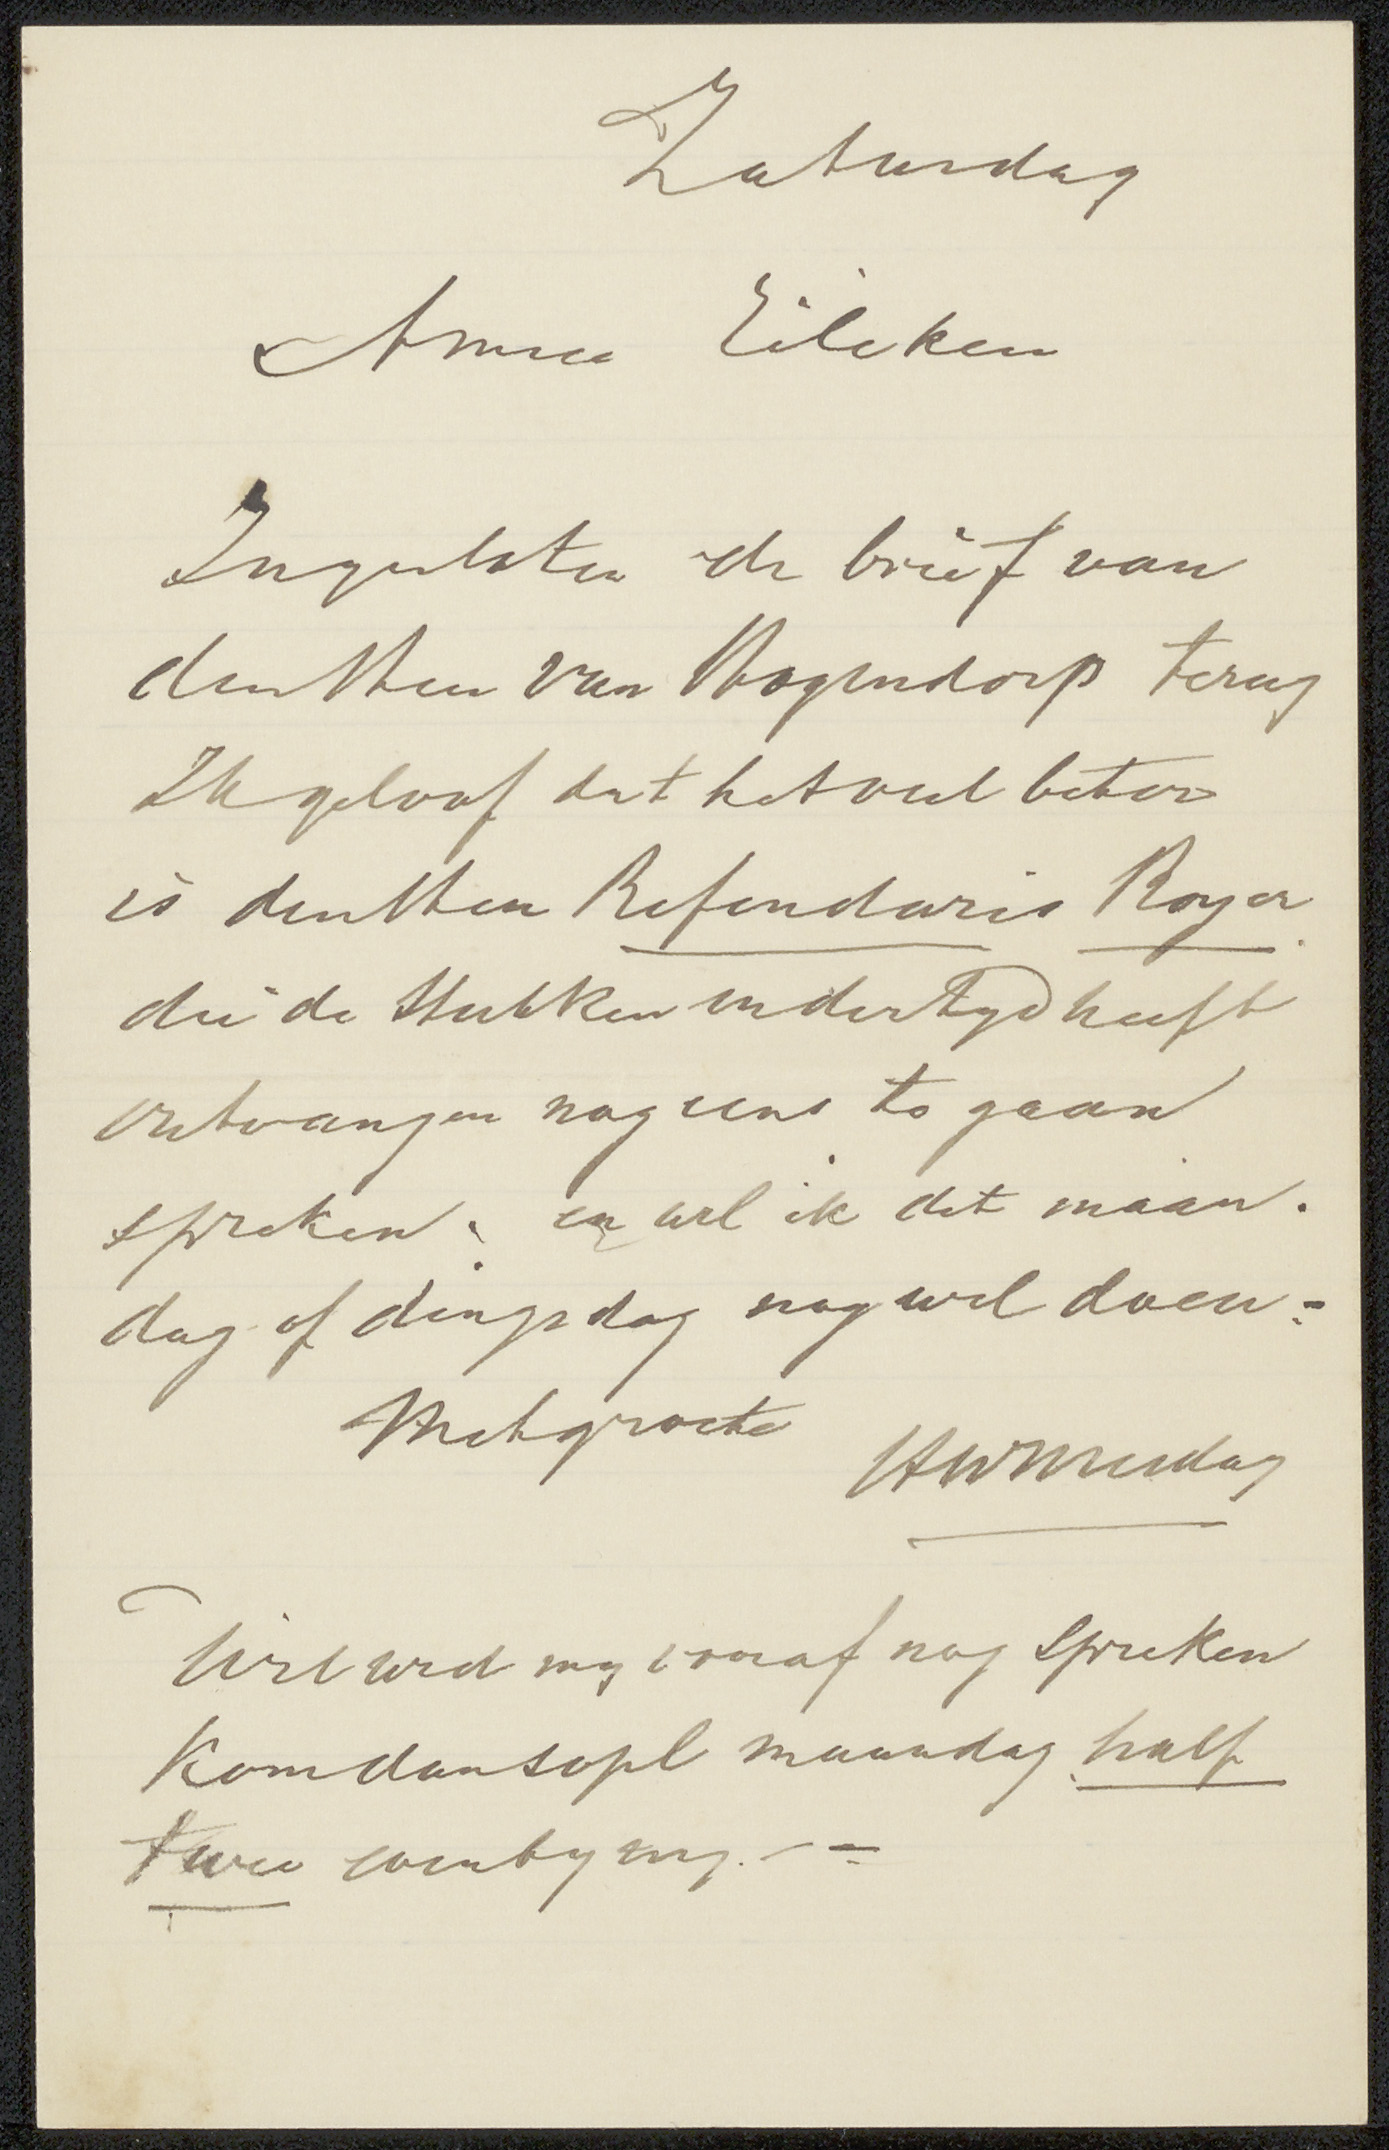 Zaturdag
Amice Eilcken
Ingesloten de brief van
den Heer van Hogendorp terug
Ik geloof dat het veel beter
is den Heer Refendaris Royer
die de stukken indertyd heeft
ontvangen nog eens te gaan
spreken. en wel ik dat maan.
dag of dingsdag nog wel doen.=
Met groete HWMesdag
Wil u my vooraf nog spreken
Kom dan sopl maandag half
twee even by my. - =